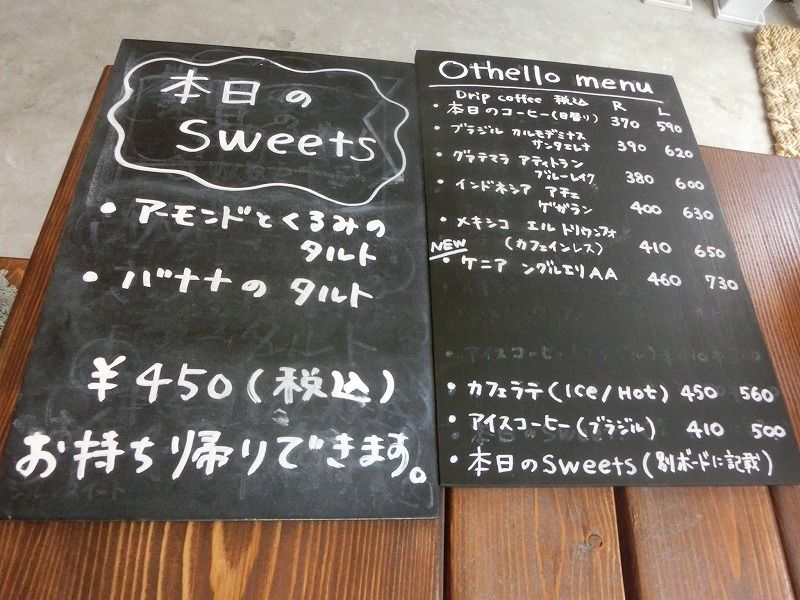 本日の
Sweets
• アーモンドとくるみの
タルト
• バナナの タルト
¥450(税込)
お持ち帰りできます。
Othello menu
Drip coffee 税込 R L
• 本日のコーヒー(日替り) 370 590
• ブラジル カルモデミナス
サンタエレナ 390 620
• グアテマラ アティトラン
ブルーレイク 380 600
• インドネシア アチェ
ゲガラン 400 630
• メキシコ エル トリウンフォ
(カフェインレス) 410 650
NEW
• ケニア ングルエリAA 460 730
• カフェラテ(Ice/Hot) 450 560
• アイスコーヒー(ブラジル) 410 500
• 本日のSweets(別ボードに記載)